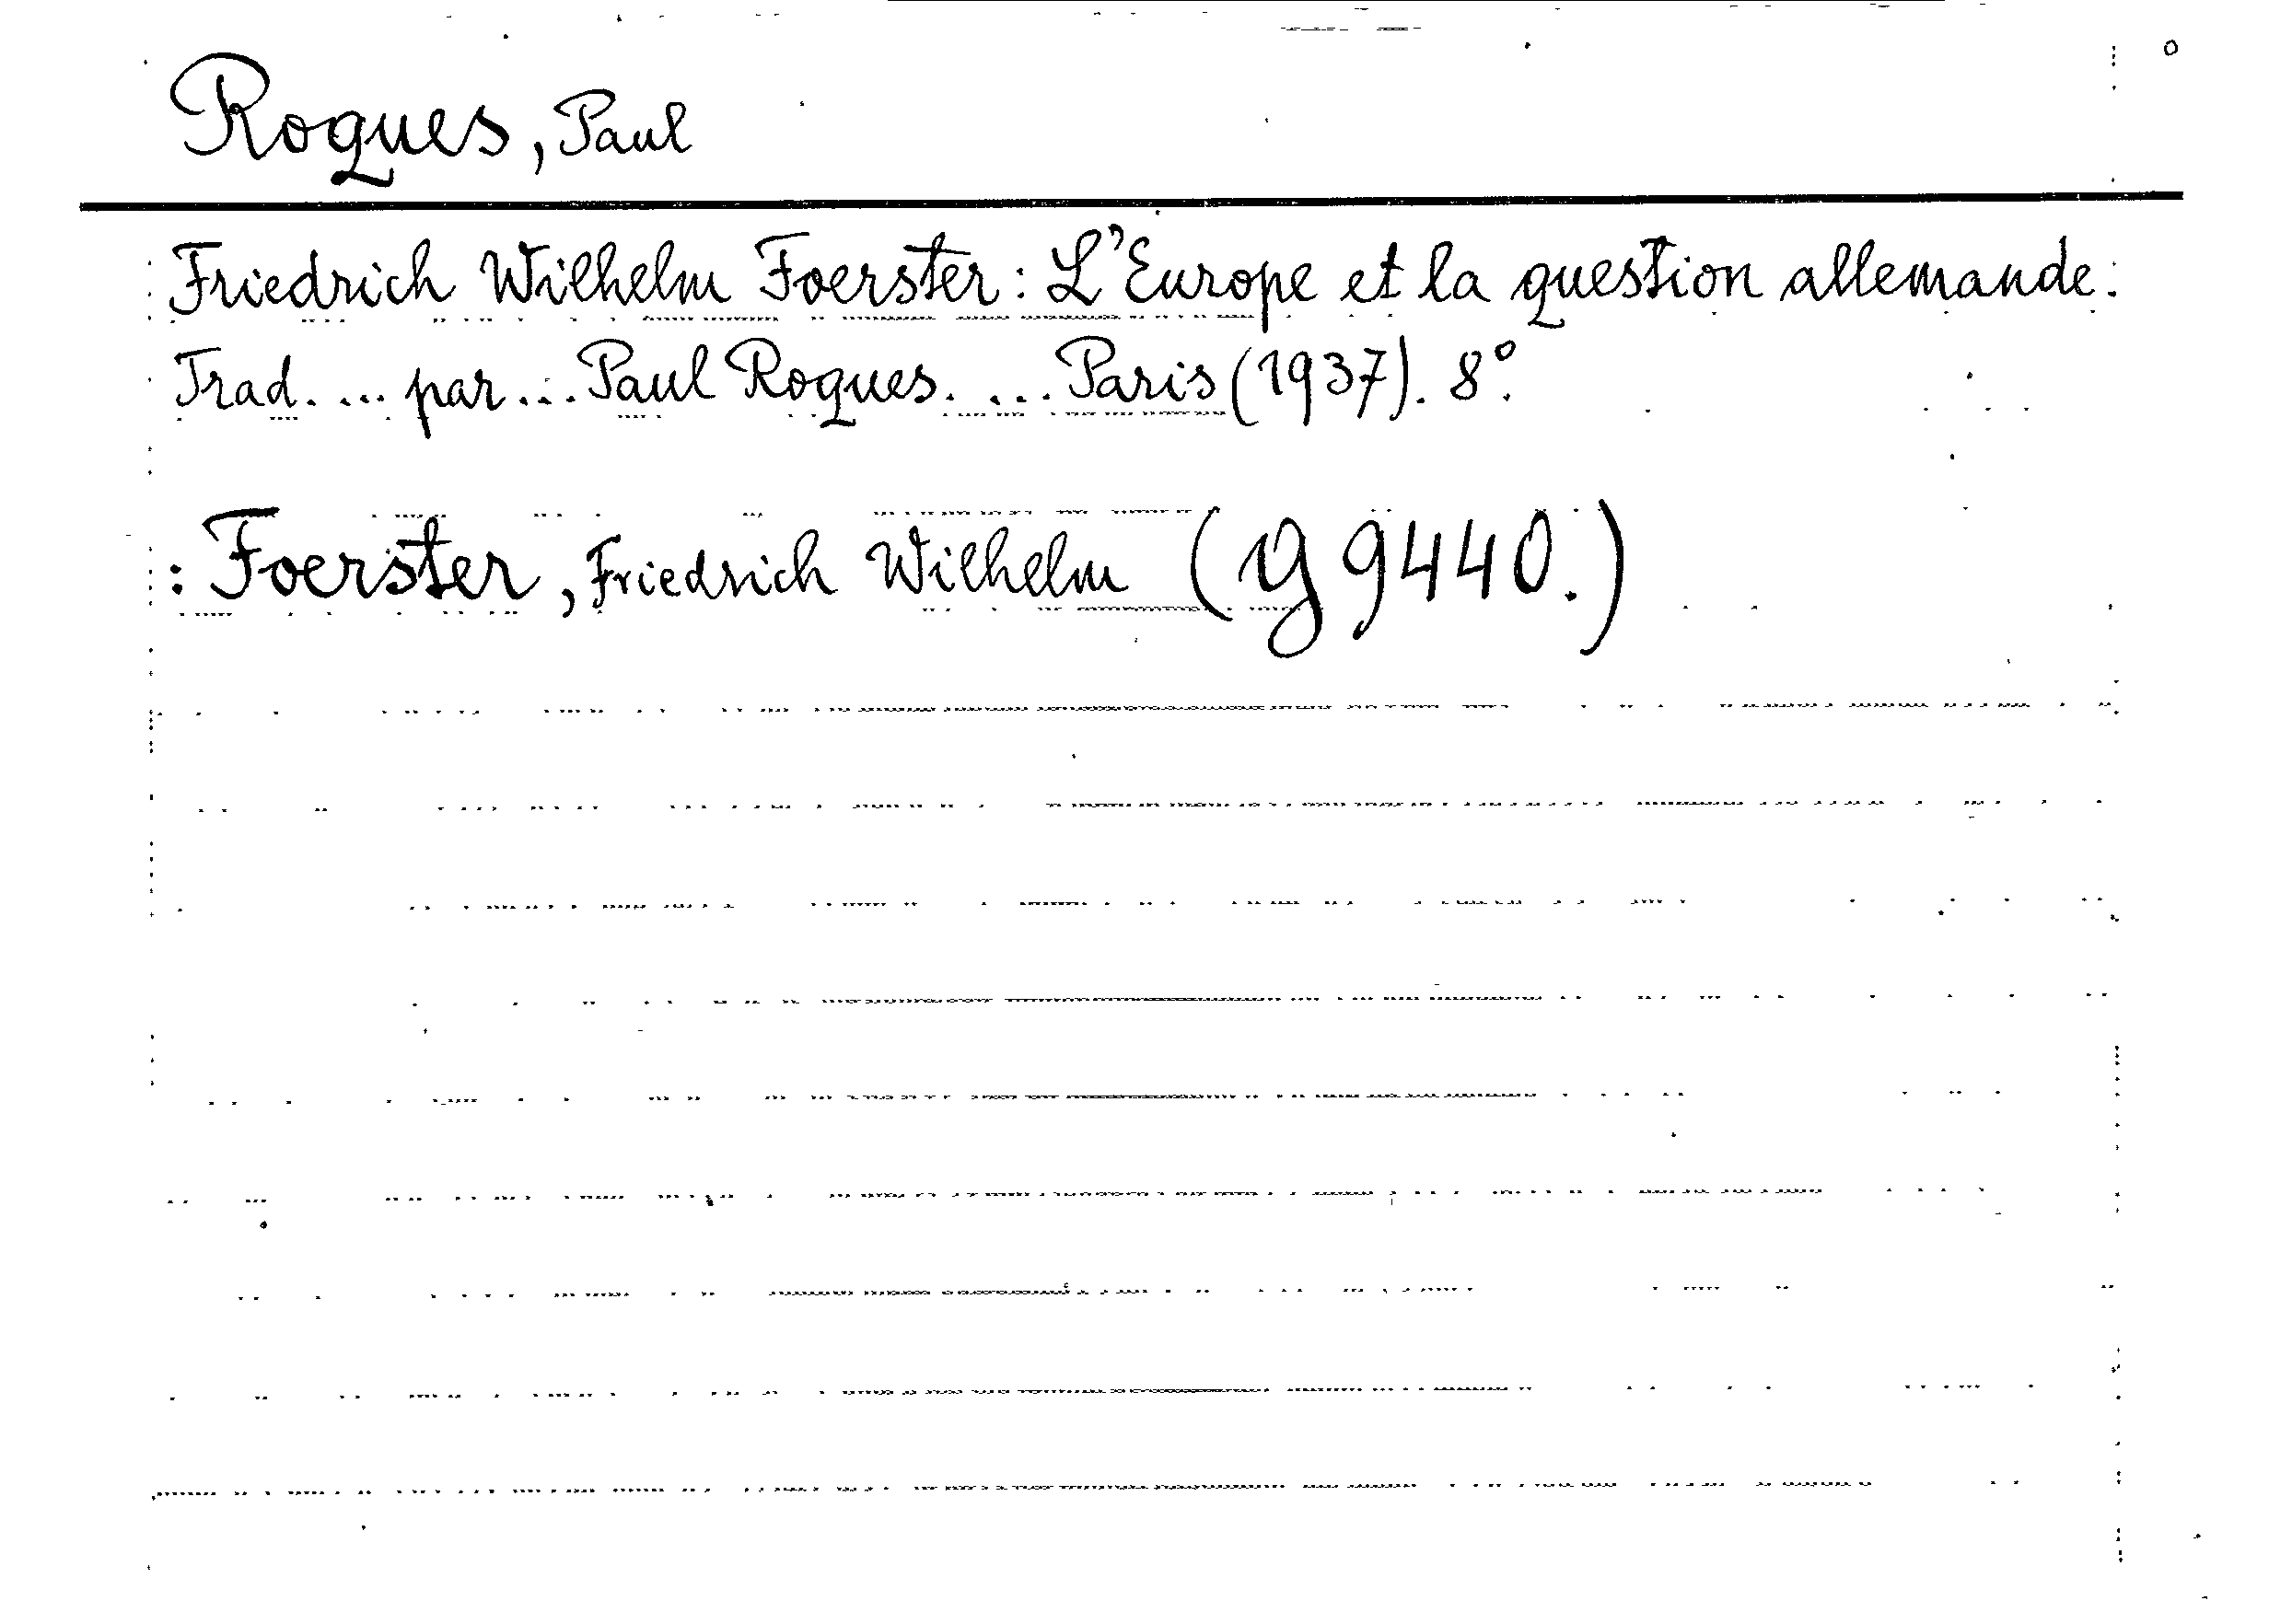 Roques, Paul
Friedrich Wilhelm Foerster: L'Europe et la question allemande.
Trad. ... par ... Paul Roques. ... Paris (1937). 8°.
: Foerster, Friedrich Wilhelm (y 9440.)